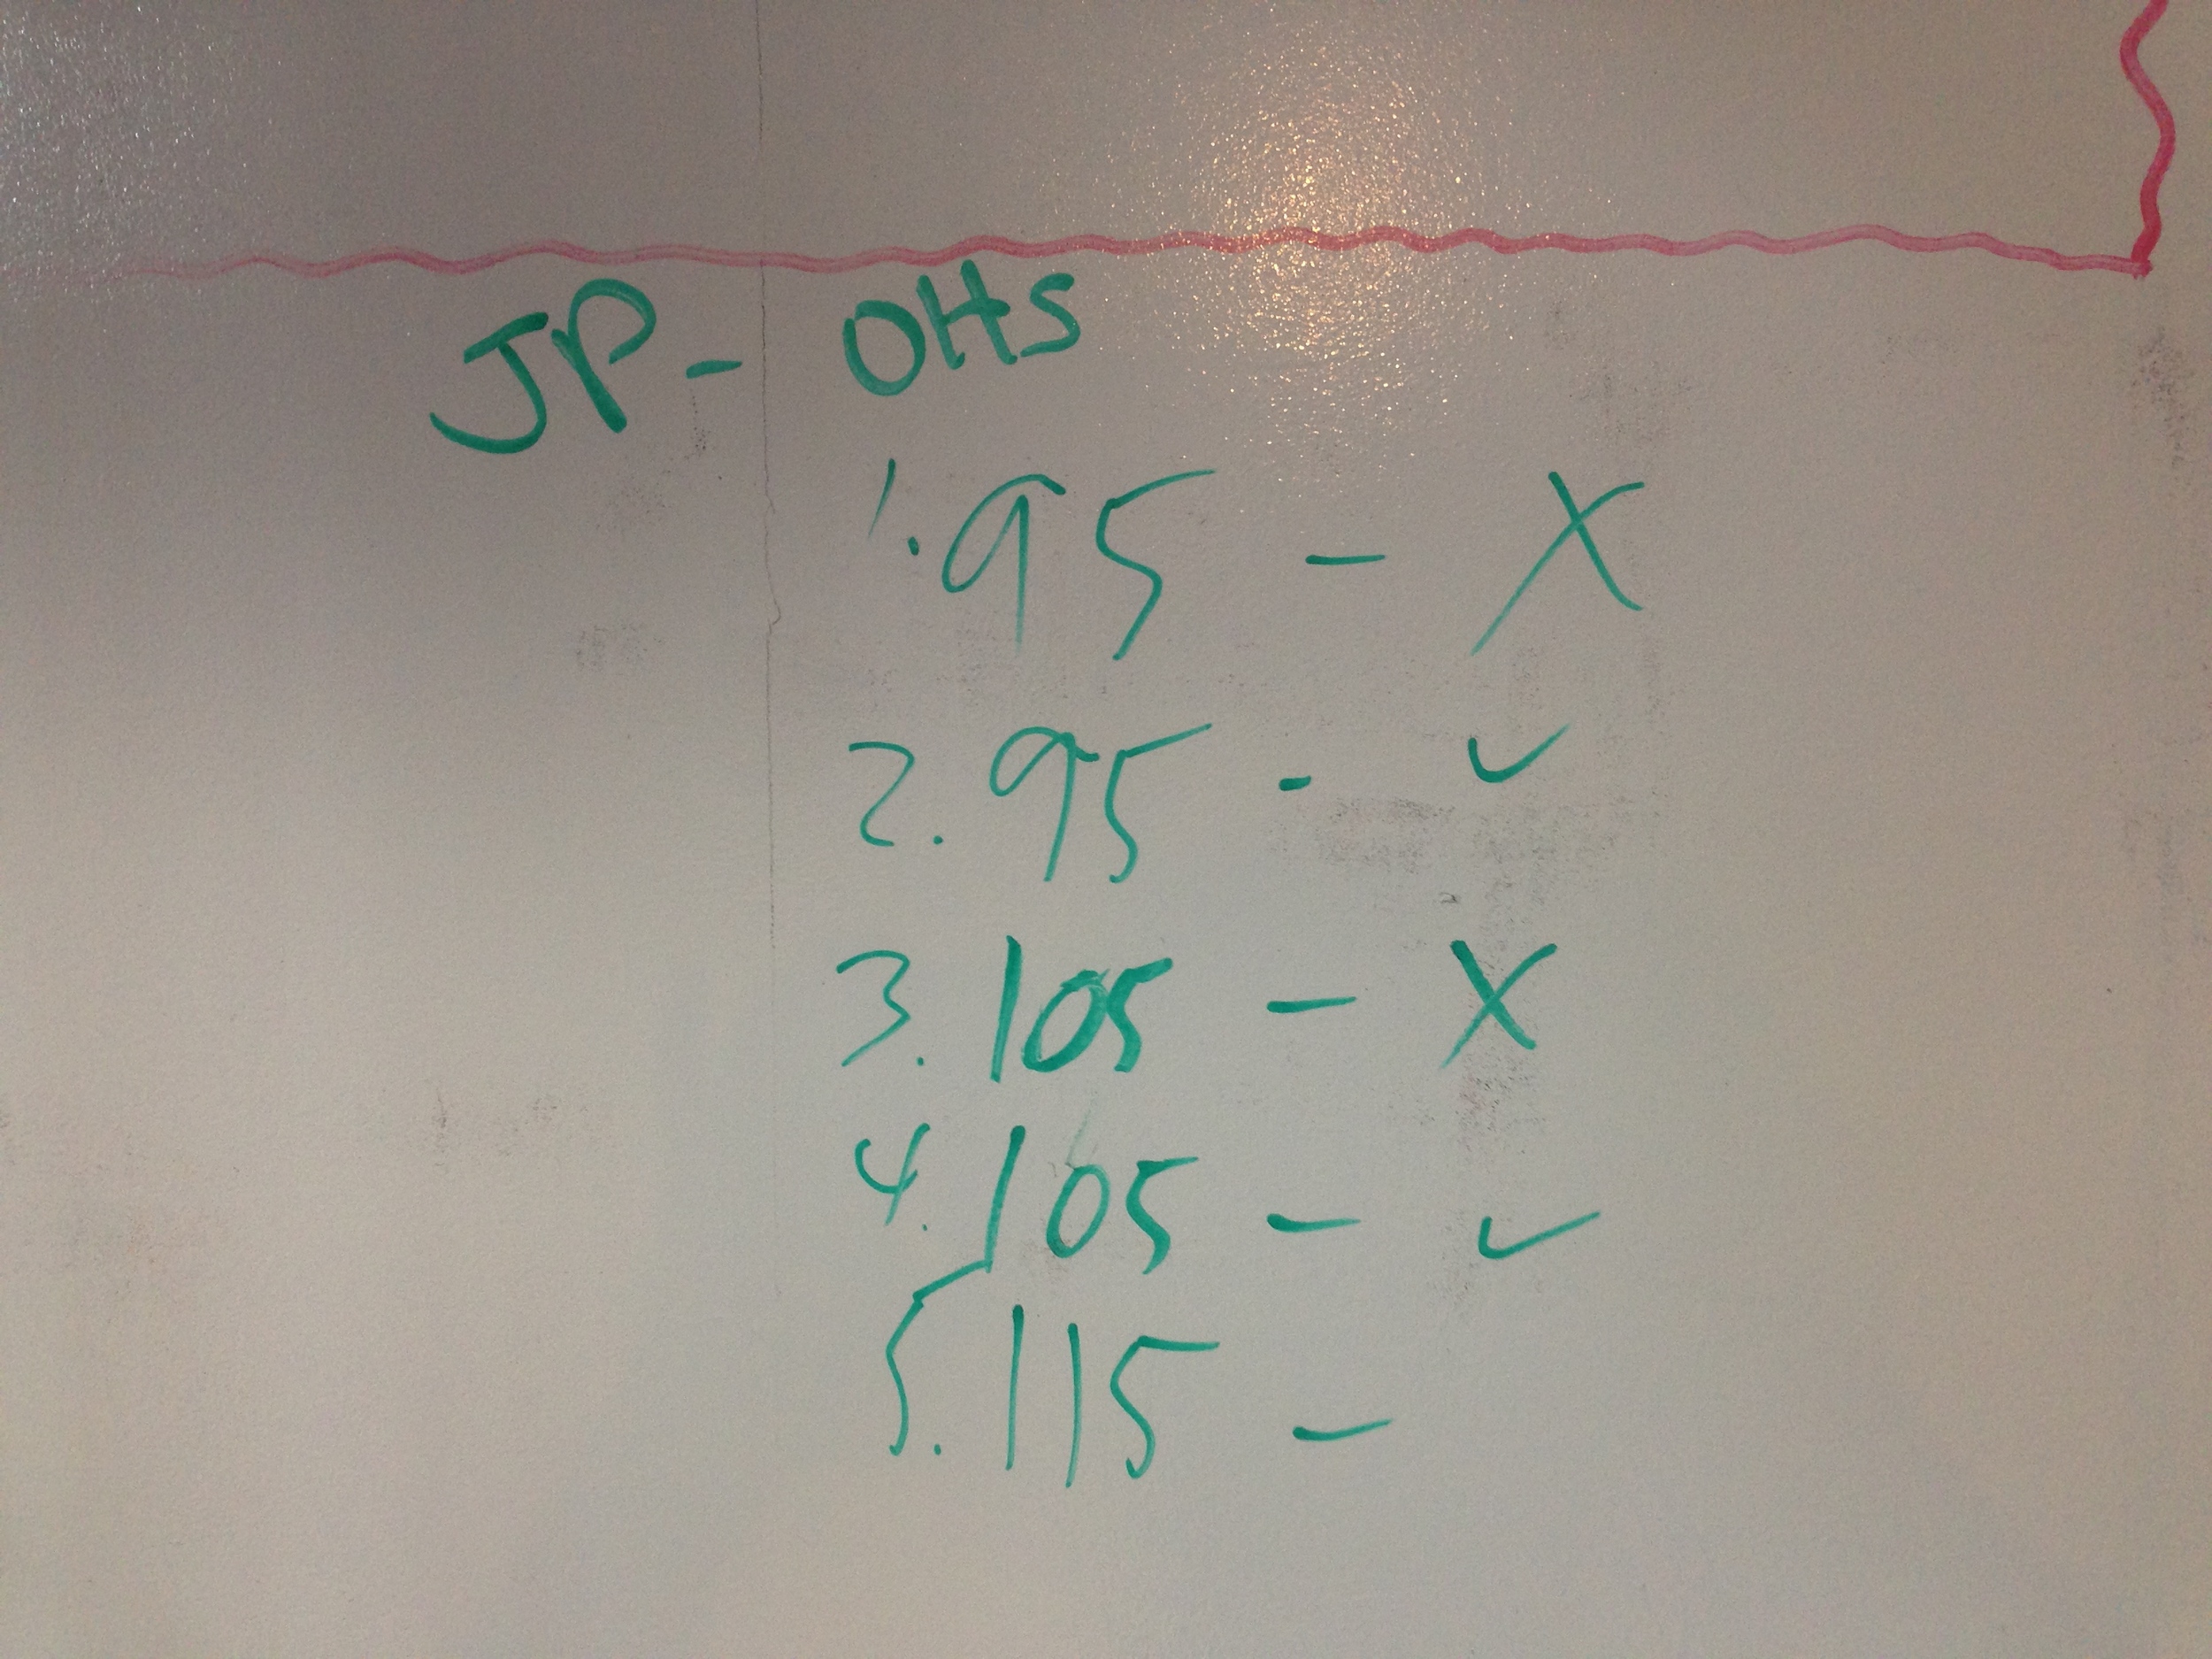 JP - OHs
1. 95 - X
2. 95 - ✓
3. 105 - X
4. 105 - ✓
5. 115 -